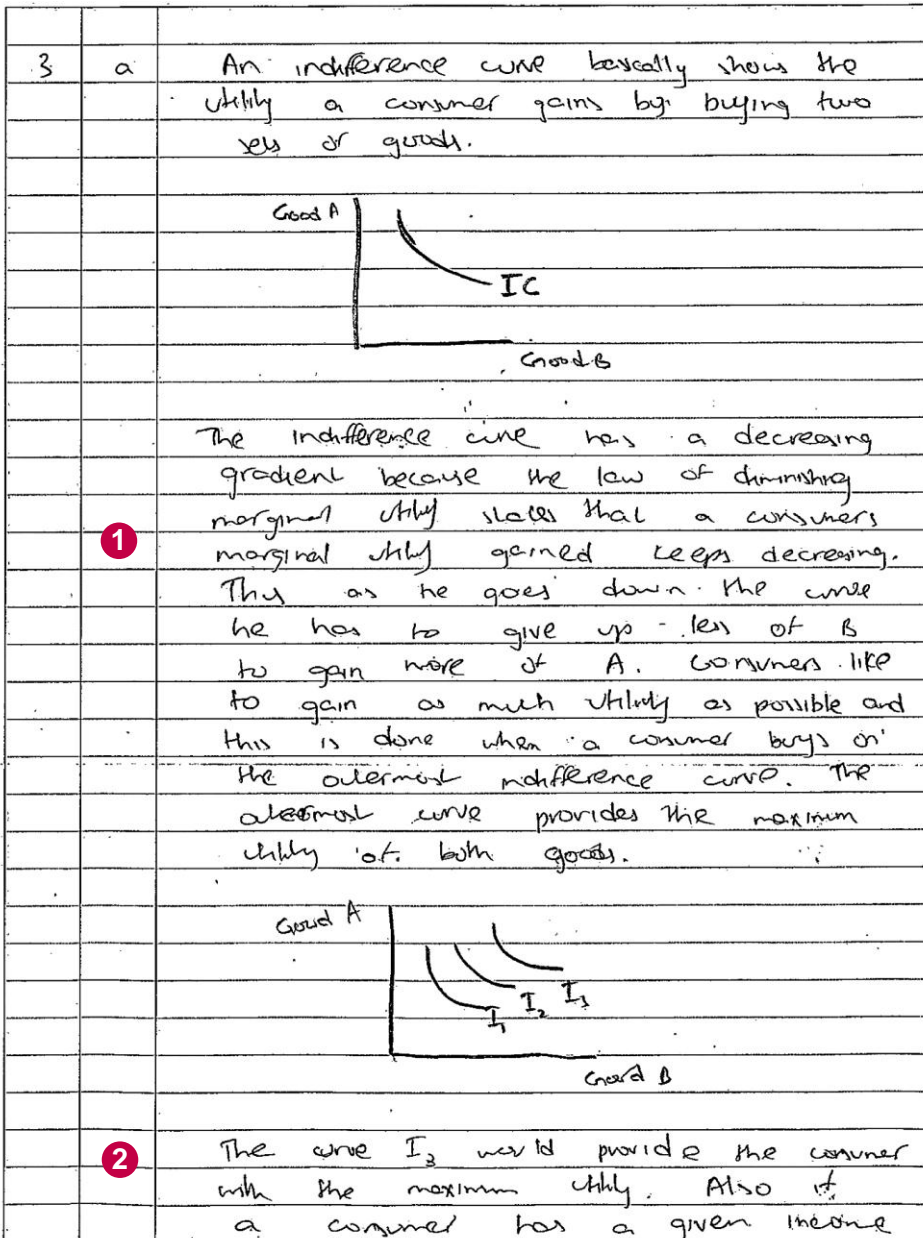 3 a An indifference curve basically shows the
utility a consumer gains by buying two
sets of goods.
Good A
IC
Good B
The indifference curve has a decreasing
gradient because the law of diminishing
marginal utility states that a consumers
1 marginal utility gained keeps decreasing.
Thus as he goes down the curve
he has to give up less of B
to gain more of A. Consumers like
to gain as much utility as possible and
this is done when a consumer buys on
the outermost indifference curve. The
outermost curve provides the maximum
utility of both goods.
Good A
I₁ I₂ I₃
Good B
2 The curve I₃ would provide the consumer
with the maximum utility. Also if
a consumer has a given income